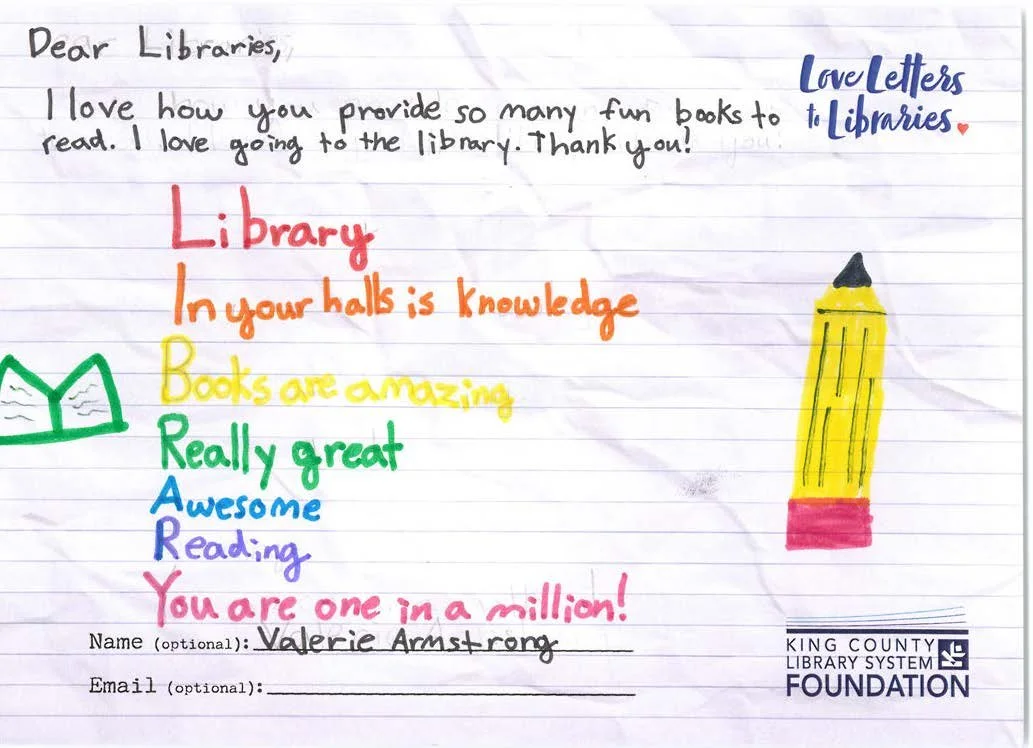 Dear Libraries,
I love how you provide so many fun books to
read. I love going to the library. Thank you!
Love Letters
to Libraries
Library
In your halls is knowledge
Books are amazing
Really great
Awesome
Reading
You are one in a million!
Name (optional): Valerie Armstrong
Email (optional):
KING COUNTY
LIBRARY SYSTEM
FOUNDATION